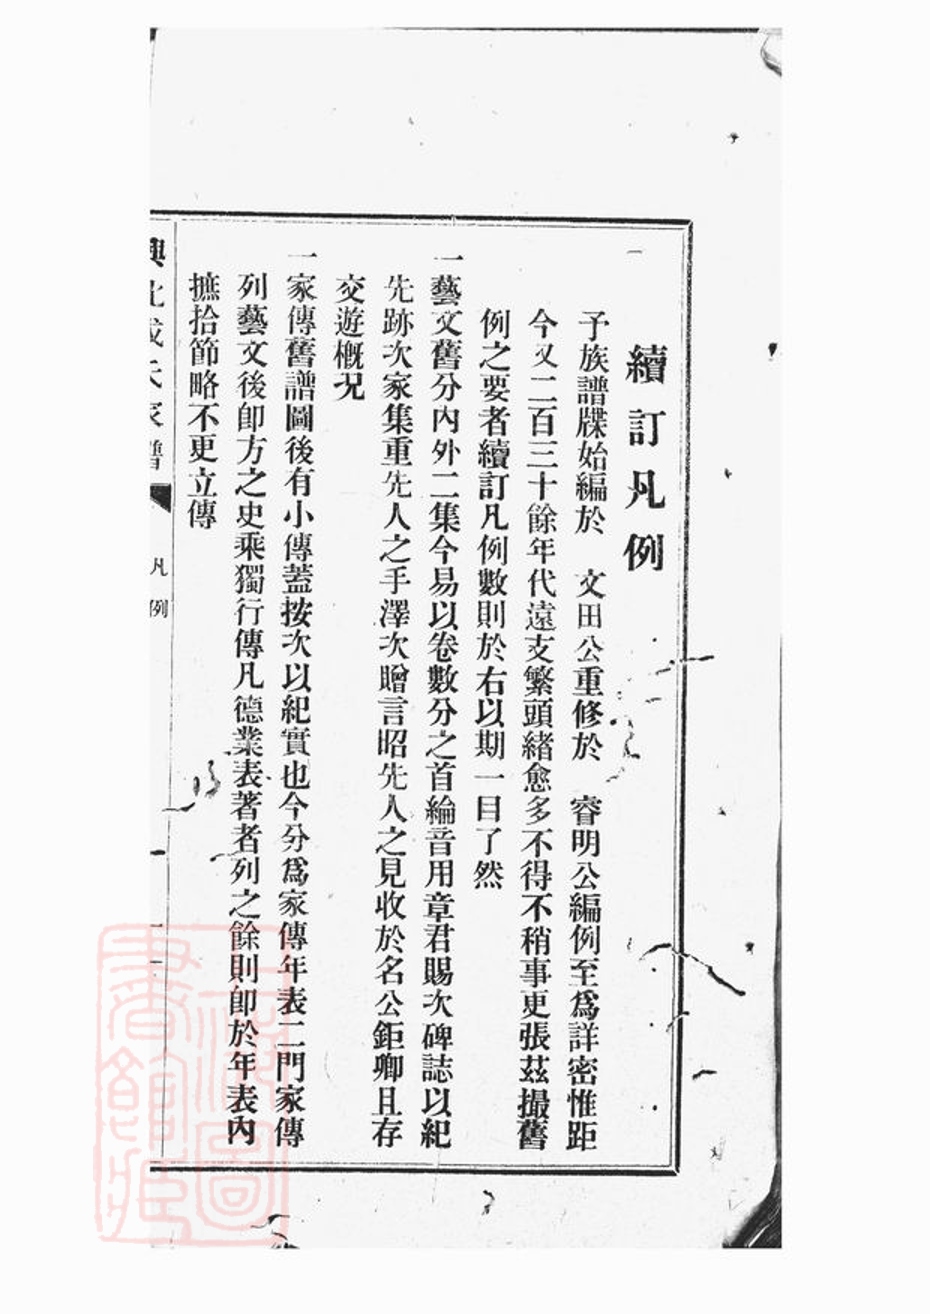 續訂凡例
予族譜牒始編於　文田公重修於　睿明公編例至爲詳密惟距
今又二百三十餘年代遠支繁頭緒愈多不得不稍事更張茲撮舊
例之要者續訂凡例數則於右以期一目了然
一藝文舊分內外二集今易以卷數分之首綸音用章君賜次碑誌以紀
先跡次家集重先人之手澤次贈言昭先人之見收於名公鉅卿且存
交遊槪況
一家傳舊譜圖後有小傳蓋按次以紀實也今分爲家傳年表二門家傳
列藝文後卽方之史乘獨行傳凡德業表著者列之餘則卽於年表內
摭拾節略不更立傳
氏家譜
凡例